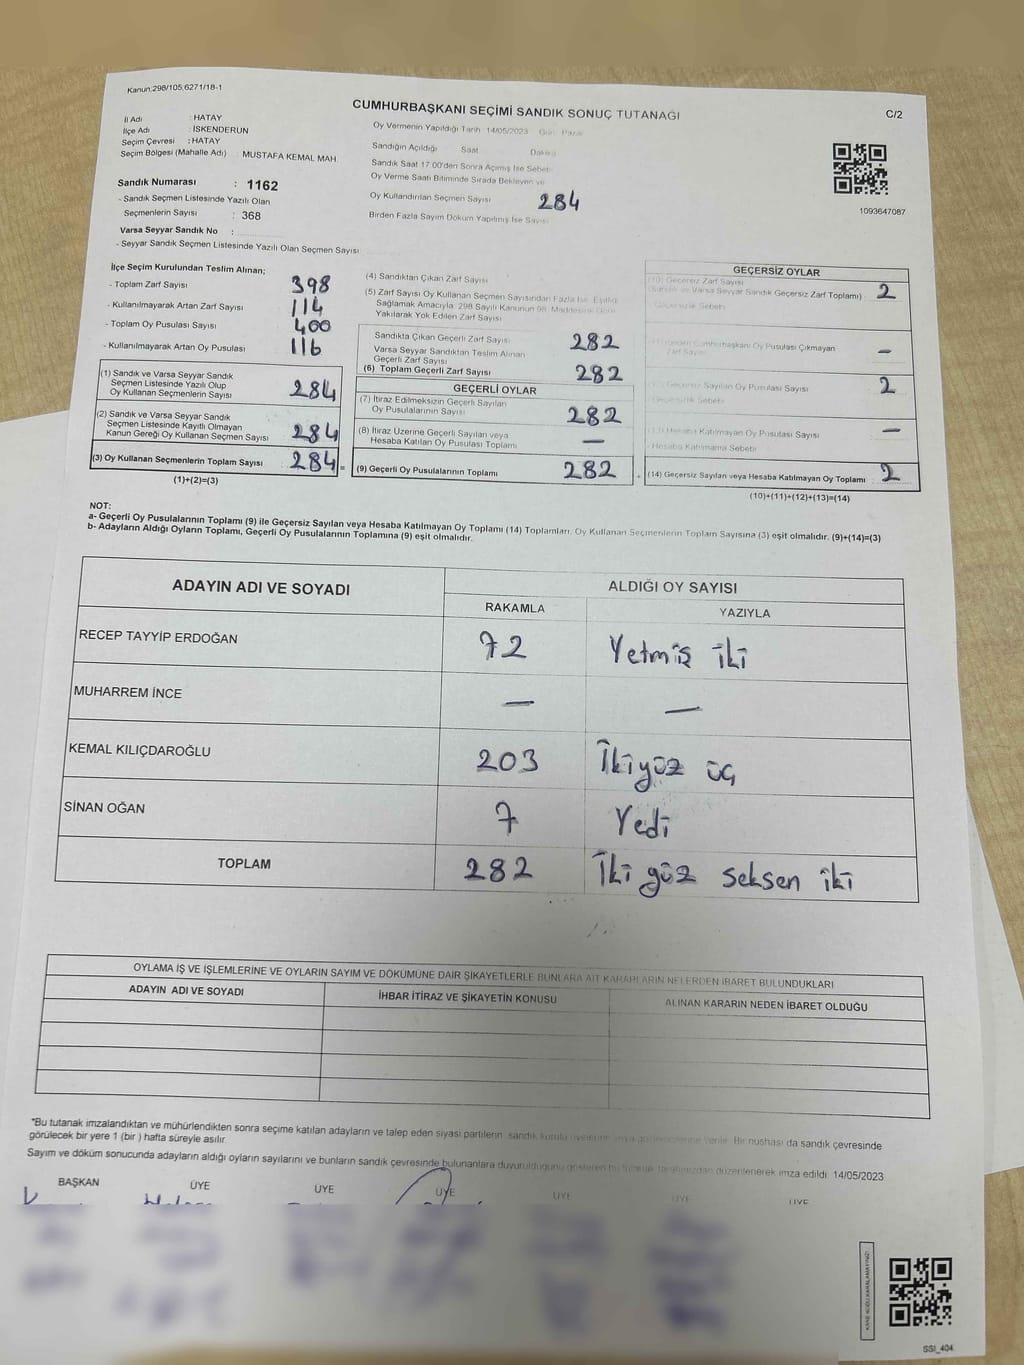 Kanun:298/105,6271/18-1
CUMHURBAŞKANI SEÇİMİ SANDIK SONUÇ TUTANAĞI
C/2
İl Adı : HATAY
İlçe Adı : İSKENDERUN
Seçim Çevresi : HATAY
Seçim Bölgesi (Mahalle Adı) : MUSTAFA KEMAL MAH.
Sandık Numarası : 1162
- Sandık Seçmen Listesinde Yazılı Olan
Seçmenlerin Sayısı : 368
Varsa Seyyar Sandık No :
- Seyyar Sandık Seçmen Listesinde Yazılı Olan Seçmen Sayısı
Oy Vermenin Yapıldığı Tarih 14/05/2023 Gün: Pazar
Sandığın Açıldığı Saat Dakika
Sandık Saat 17:00'den Sonra Açılmış İse Sebebi
Oy Verme Saati Bitiminde Sırada Bekleyen ve
Oy Kullandırılan Seçmen Sayısı 284
Birden Fazla Sayım Döküm Yapılmış İse Sayısı
1093647087
İlçe Seçim Kurulundan Teslim Alınan;
- Toplam Zarf Sayısı 398
- Kullanılmayarak Artan Zarf Sayısı 114
- Toplam Oy Pusulası Sayısı 400
- Kullanılmayarak Artan Oy Pusulası 116
(1) Sandık ve Varsa Seyyar Sandık
Seçmen Listesinde Yazılı Olup
Oy Kullanan Seçmenlerin Sayısı 284
(2) Sandık ve Varsa Seyyar Sandık
Seçmen Listesinde Kayıtlı Olmayan
Kanun Gereği Oy Kullanan Seçmen Sayısı 284
(3) Oy Kullanan Seçmenlerin Toplam Sayısı 284 =
(1)+(2)=(3)
(4) Sandıktan Çıkan Zarf Sayısı
(5) Zarf Sayısı Oy Kullanan Seçmen Sayısından Fazla İse, Eşitliği
Sağlamak Amacıyla, 298 Sayılı Kanunun 98. Maddesine Göre
Yakılarak Yok Edilen Zarf Sayısı
Sandıkta Çıkan Geçerli Zarf Sayısı 282
Varsa Seyyar Sandıktan Teslim Alınan
Geçerli Zarf Sayısı
(6) Toplam Geçerli Zarf Sayısı 282
GEÇERLİ OYLAR
(7) İtiraz Edilmeksizin Geçerli Sayılan
Oy Pusulalarının Sayısı 282
(8) İtiraz Üzerine Geçerli Sayılan veya
Hesaba Katılan Oy Pusulası Toplamı —
(9) Geçerli Oy Pusulalarının Toplamı 282
GEÇERSİZ OYLAR
(10) Geçersiz Zarf Sayısı
(Sandık ve Varsa Seyyar Sandık Geçersiz Zarf Toplamı) 2
Geçersizlik Sebebi
Cumhurbaşkanı Oy Pusulası Çıkmayan
Zarf Sayısı —
Geçersiz Sayılan Oy Pusulası Sayısı 2
Geçersizlik Sebebi
Hesaba Katılmayan Oy Pusulası Sayısı —
Hesaba Katılmama Sebebi
(14) Geçersiz Sayılan veya Hesaba Katılmayan Oy Toplamı 2
(10)+(11)+(12)+(13)=(14)
NOT:
a- Geçerli Oy Pusulalarının Toplamı (9) ile Geçersiz Sayılan veya Hesaba Katılmayan Oy Toplamı (14) Toplamları, Oy Kullanan Seçmenlerin Toplam Sayısına (3) eşit olmalıdır. (9)+(14)=(3)
b- Adayların Aldığı Oyların Toplamı, Geçerli Oy Pusulalarının Toplamına (9) eşit olmalıdır.
ADAYIN ADI VE SOYADI ALDIĞI OY SAYISI
RAKAMLA YAZIYLA
RECEP TAYYİP ERDOĞAN 72 Yetmiş iki
MUHARREM İNCE — —
KEMAL KILIÇDAROĞLU 203 İkiyüz üç
SİNAN OĞAN 7 Yedi
TOPLAM 282 İki yüz seksen iki
OYLAMA İŞ VE İŞLEMLERİNE VE OYLARIN SAYIM VE DÖKÜMÜNE DAİR ŞİKAYETLERLE BUNLARA AİT KARARLARIN NELERDEN İBARET BULUNDUKLARI
ADAYIN ADI VE SOYADI İHBAR İTİRAZ VE ŞİKAYETİN KONUSU ALINAN KARARIN NEDEN İBARET OLDUĞU
*Bu tutanak imzalandıktan ve mühürlendikten sonra seçime katılan adayların ve talep eden siyasi partilerin sandık kurulu verilir. Bir nüshası da sandık çevresinde
görülecek bir yere 1 (bir ) hafta süreyle asılır.
Sayım ve döküm sonucunda adayların aldığı oyların sayılarını ve bunların sandık çevresinde bulunanlara duyurulduğunu gösteren bu tutanak tarafımızdan düzenlenerek imza edildi. 14/05/2023
BAŞKAN ÜYE ÜYE ÜYE ÜYE ÜYE ÜYE
SSI_404